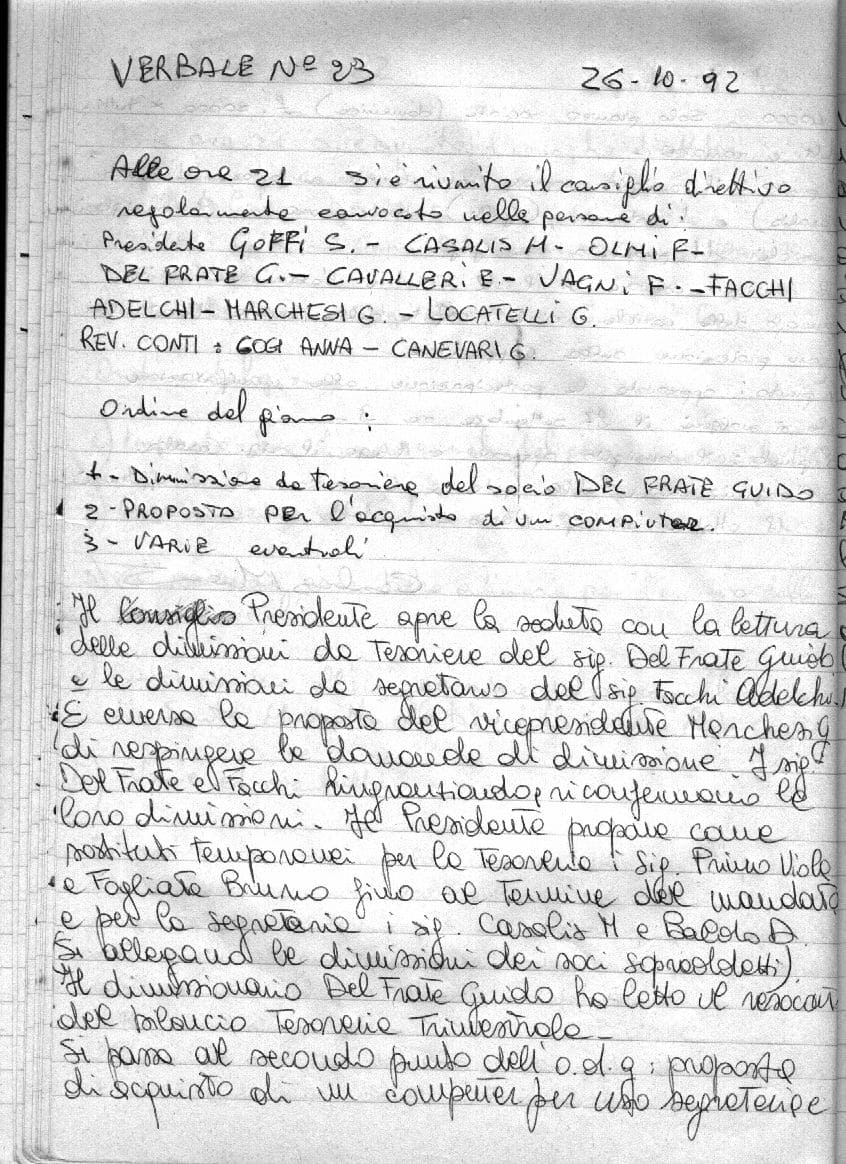 VERBALE Nº 23 26-10-92
Alle ore 21 si è riunito il consiglio direttivo
regolarmente convocato nelle persone di:
Presidente GOFFI S. - CASALIS M - OLMI F-
DEL FRATE G. - CAVALLERI E. - VAGNI F. - FACCHI
ADELCHI - MARCHESI G. - LOCATELLI G.
REV. CONTI: GOGI ANNA - CANEVARI G.
Ordine del giorno:
1 - Dimissione da tesoriere del socio DEL FRATE GUIDO
2 - PROPOSTO PER l'acquisto di un COMPIUTER.
3 - VARIE eventuali
Il Presidente apre la seduta con la lettura
delle dimissioni da Tesoriere del sig. Del Frate Guido
e le dimissioni da segretario del sig. Facchi Adelchi.
È emersa la proposta del vicepresidente Marchesi G
di respingere le domande di dimissione. I sig.
Del Frate e Facchi Ringrantiando, riconfermano le
loro dimissioni. Il Presidente propone come
sostituti temporanei per la Tesoreria i sig. Primo Viola
e Fogliata Bruno fino al Termine del mandato
e per la segreteria i sig. Casalis M e Baldo D.
Si allegano le dimissioni dei soci sopracitati).
Il dimissionario Del Frate Guido ha letto il resocon
del bilancio Tesoreria Trimestrale -
Si passa al secondo punto dell'o.d.g: proposta
di acquisto di un computer per uso segreteria e